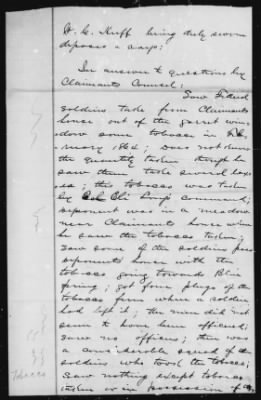 W. C. Huff being duly sworn
deposes & says:
In answer to questions by
Claimants Counsel:
Saw Federal
soldiers take from Claimants
house out of the garret win
dow some tobacco in Feb
ruary 1864; does not know
the quantity taken though he
saw them take several box
es; this tobacco was taken
by Col Eli command;
deponent was in a meadow
near Claimants house when
he saw the tobacco taken;
Saw some of the soldiers pass
deponents house with the
tobacco going towards Blue
Spring; got four plugs of the
tobacco from where a soldier
had left it; the men did not
seem to have been officered;
Saw no officers; there was
a considerable squad of the
soldiers who took the tobacco;
Saw nothing except tobacco
taken or in possession of the
Tobacco